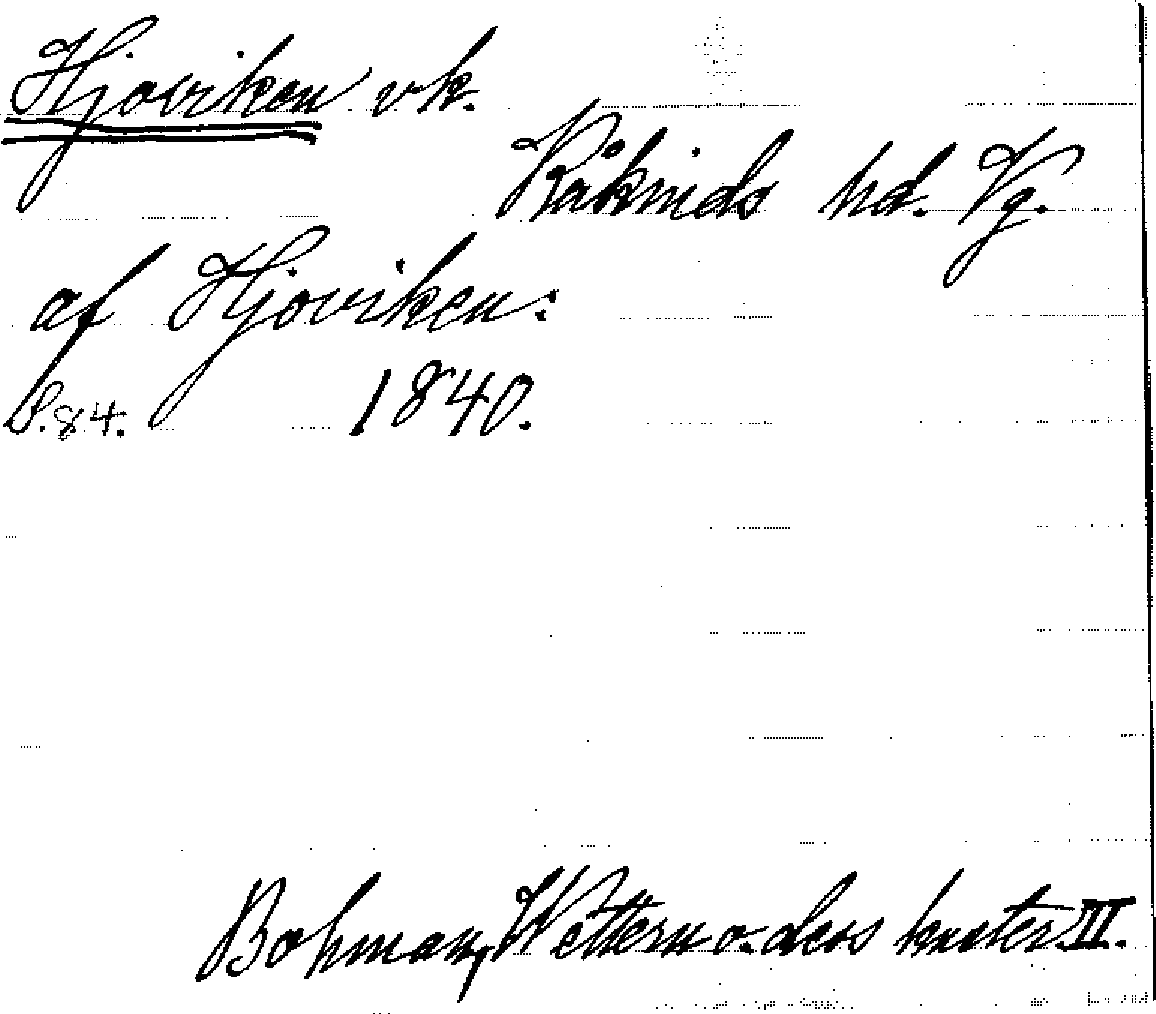 Hjoviken vk.
Kåkinds hd. Vg.
af Hjoviken:
S. 84. 1840.
Bohman, Wettern o. dess kuster. III.